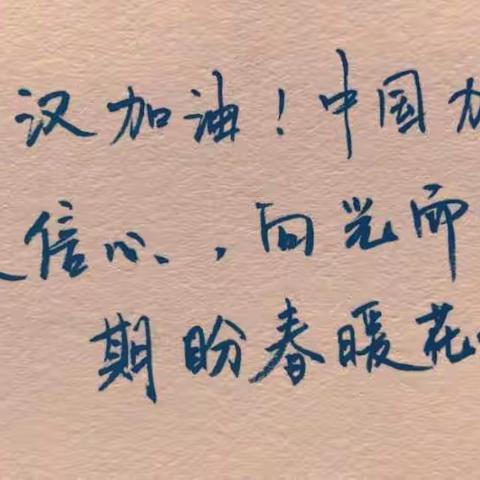 汉加油！中国
信心，向光而
期盼春暖花